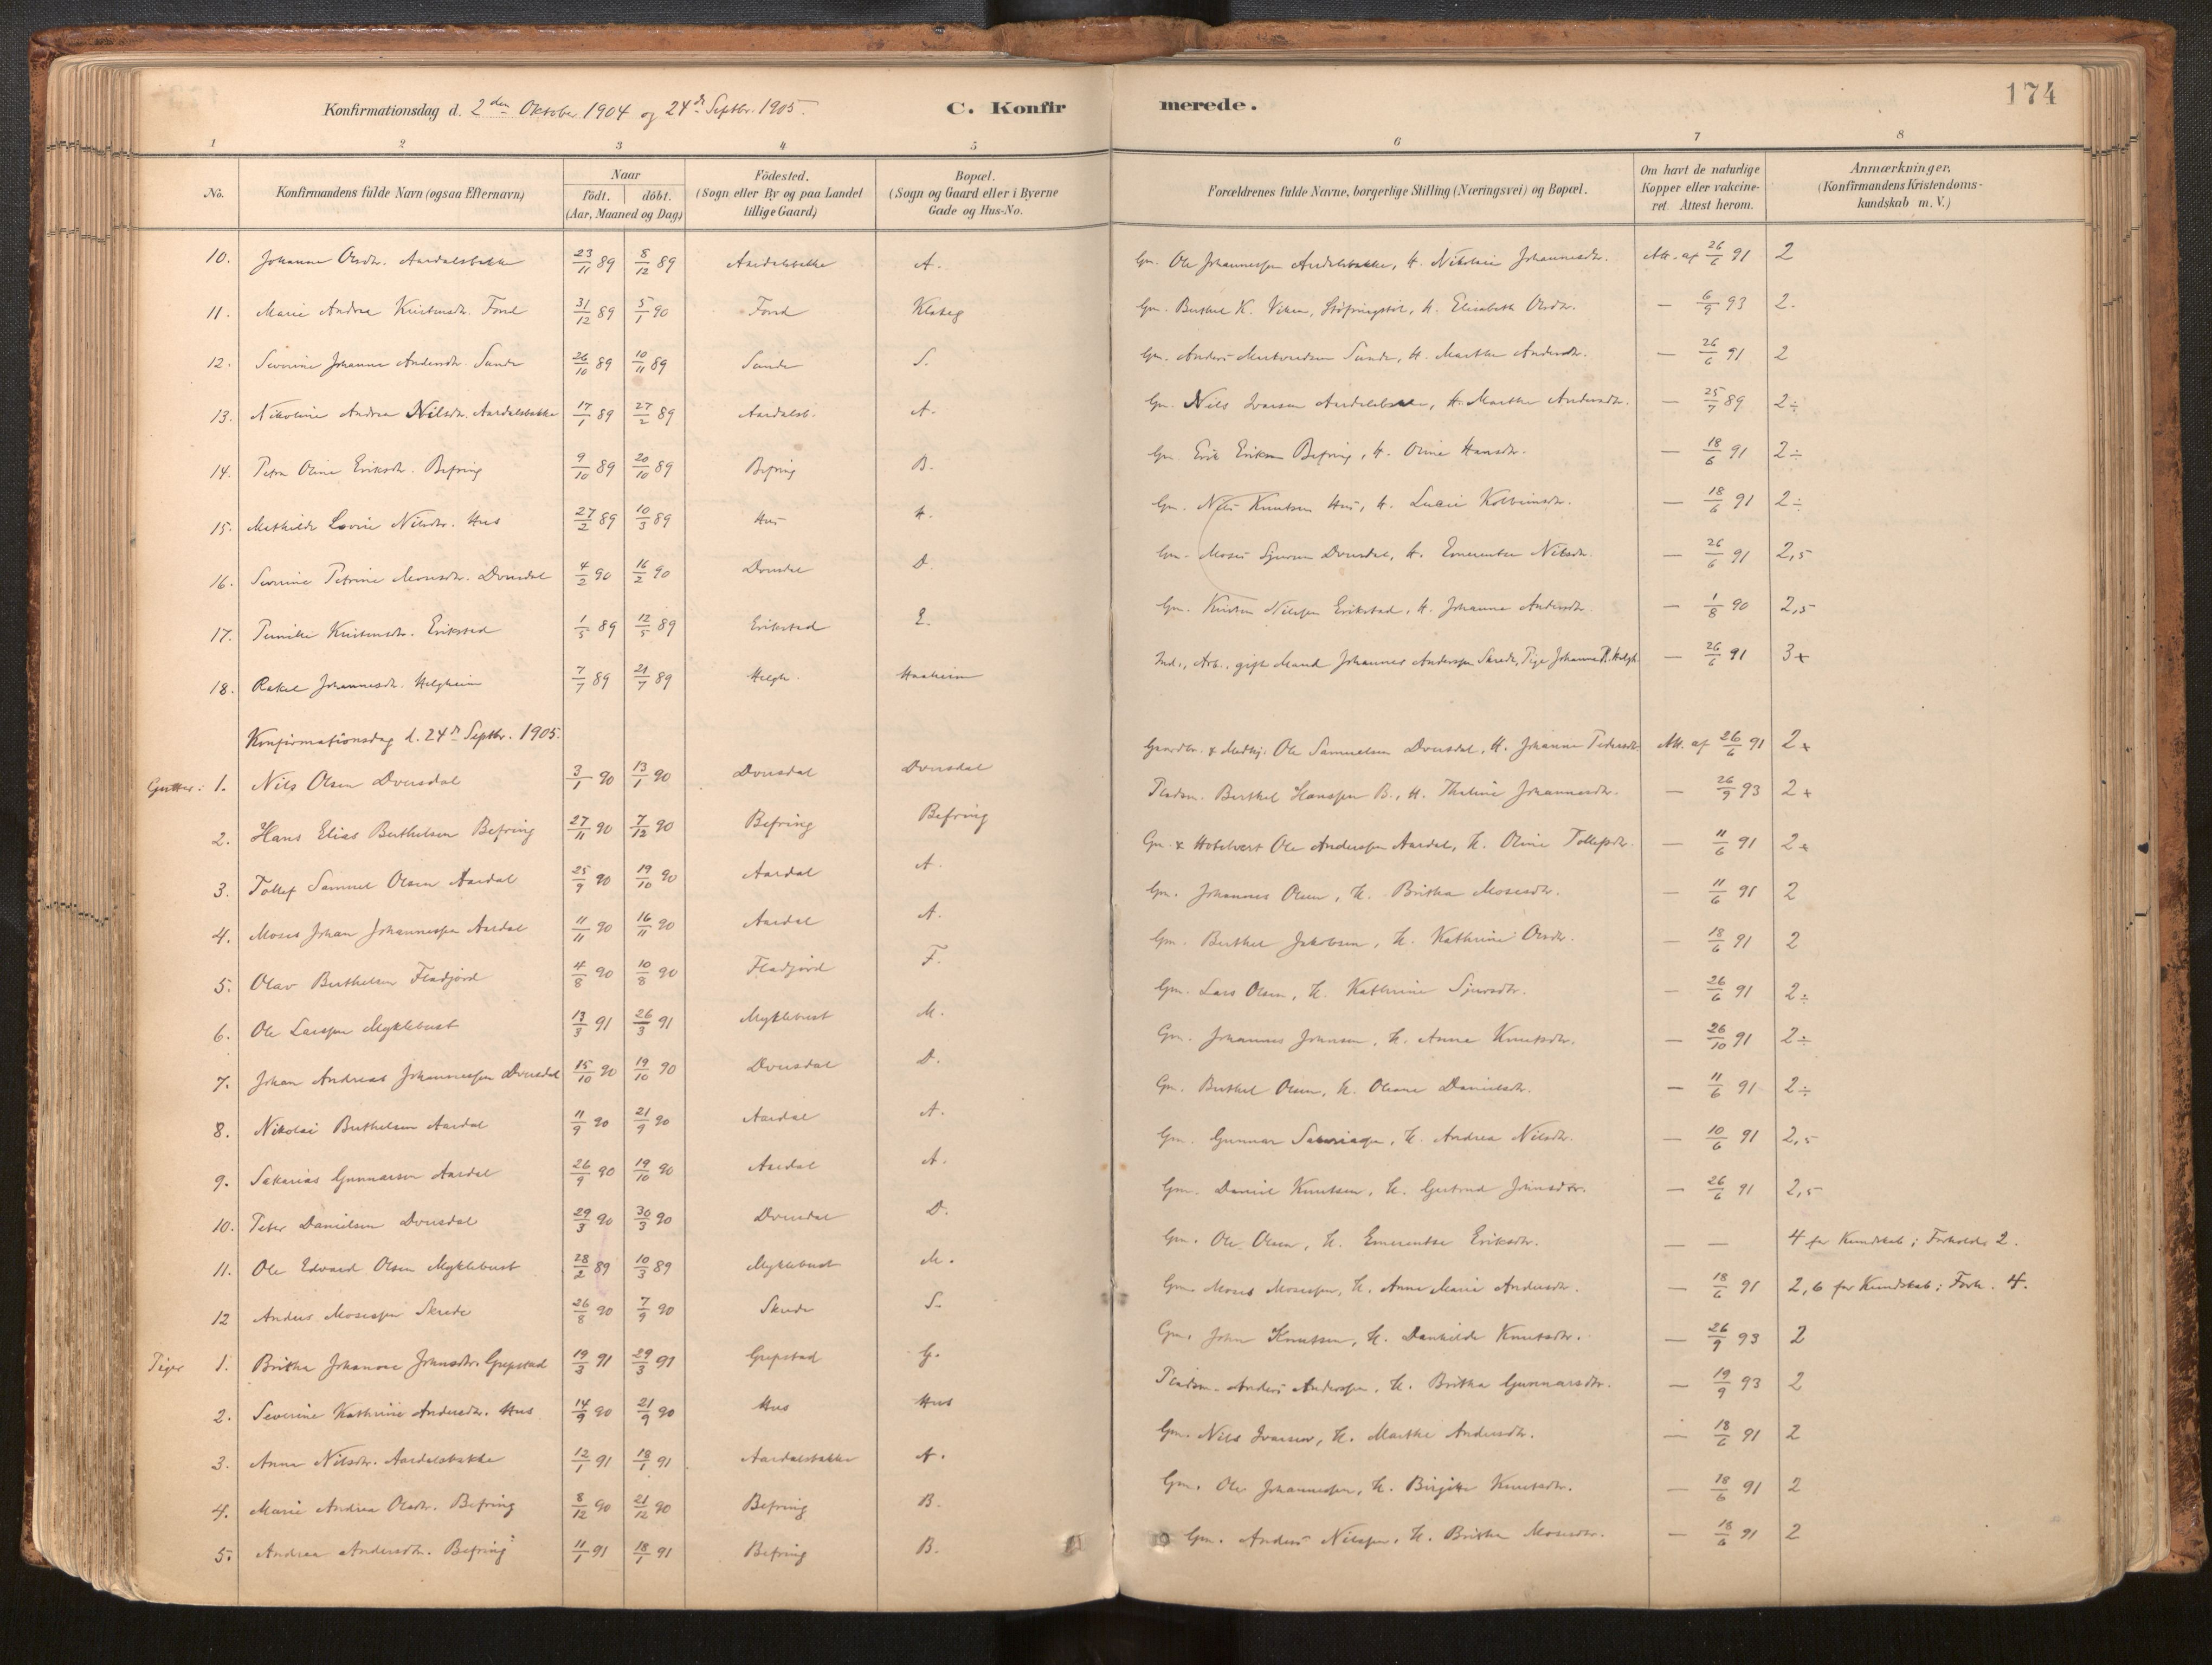 Konfirmationsdag d. 2den Oktober 1904 og 24de Septbr. 1905.
C. Konfirmerede.
174
1 2 3 4 5 6 7 8
No. Konfirmandens fulde Navn (ogsaa Efternavn) Naar født. døbt. (Aar, Maaned og Dag) Fødested. (Sogn eller By og paa Landet tillige Gaard) Bopæl. (Sogn og Gaard eller i Byerne Gade og Hus-No. Forældrenes fulde Navne, borgerlige Stilling (Næringsvei) og Bopæl. Om havt de naturlige Kopper eller vakcineret. Attest herom. Anmærkninger. (Konfirmandens Kristendomskundskab m. V.)
10. Johanne Olsdtr. Aardalsbakke 23/11 89 8/12 89 Aardalsbakke A. Gm. Ole Johannessen Aardalsbakke, H. Nikoline Johannesdtr. Att. af 26/6 91 2
11. Marie Andrea Kristensdtr. Fond 31/12 89 5/1 90 Fond Klakeg Gm. Berthel K. Viken, H. Elisabeth Olsdtr. — 6/9 93 2.
12. Severine Johanne Andersdtr. Sande 26/10 89 10/11 89 Sande S. Gm. Anders Sande, H. Marthe Andersdtr. — 26/6 91 2
13. Nikoline Andrea Nilsdtr. Aardalsbakke 17/1 89 27/2 89 Aardalsb. A. Gm. Nils Ivarsen, H. Marthe Andersdtr. — 25/7 89 2÷
14. Petra Oline Eriksdtr. Befring 9/10 89 20/10 89 Befring B. Gm. Erik Eriksen Befring, H. Oline Hansdtr. — 18/6 91 2÷
15. Mathilde Lovise Nilsdtr. Hus 27/2 89 10/3 89 Hus H. Gm. Nils Knutsen Hus, H. Lucie Kolbeinsdtr. — 18/6 91 2÷
16. Severine Petrine Mosesdtr. Dvergsdal 4/2 90 16/2 90 D. Gm. Moses Sjursen, H. Emerentse Nilsdtr. — 26/6 91 2,5
17. Pernille Kristensdtr. Erikstad 1/5 89 12/5 89 Erikstad E. Gm. Kristen Nilssen Erikstad, H. Johanne Andersdtr. — 1/8 90 2,5
18. Rakel Johannesdtr. Helgheim 7/7 89 21/7 89 Helgh. Haaheim Ind., Arb., gift Mand Johannes Anderssen Skrede, Pige Johanne R. Helgh. — 26/6 91 3+
Konfirmationsdag d. 24de Septbr. 1905.
Gutter: 1. Nils Olsen Dvergsdal 3/1 90 13/1 90 Ole Samuelsen, H. Johanne Pedersdtr. Att. af 26/6 91 2+
2. Hans Elias Berthelsen Befring 27/11 90 7/12 90 Befring Befring Pladsm. Berthel Hanssen B., H. Thaline Johannesdtr. — 26/9 93 2+
3. Tollef Samuel Olsen Aardal 25/9 90 19/10 90 Aardal A. Gm. & Hotelvert Ole Anderssen Aardal, H. Oline Tollefsdtr. — 11/6 91 2+
4. Moses Johan Johannessen Aardal 11/11 90 16/11 90 Aardal A. Gm. Johannes Olsen, H. Britha Mosesdtr. — 11/6 91 2
5. Olav Berthelsen Fladjord 4/8 90 10/8 90 Fladjord F. Gm. Berthel Jakobsen, H. Kathrine Olsdtr. — 18/6 91 2
6. Ole Larssen Myklebust 13/3 91 26/3 91 Myklebust M. Gm. Lars Olsen, H. Kathrine Sjursdtr. — 26/6 91 2÷
7. Johan Andreas Johannessen 15/10 90 19/10 90 D. Gm. Johannes Johnsen, H. Anna Knutsdtr. — 26/10 91 2÷
8. Nikolai Berthelsen Aardal 11/9 90 21/9 90 Aardal A. Gm. Berthel Olsen, H. Oleane Danielsdtr. — 11/6 91 2÷
9. Sakarias Gunnarsen Aardal 26/9 90 19/10 90 Aardal A. Gm. Gunnar, H. Andrea Nilsdtr. — 10/6 91 2,5
10. Peter Danielsen 29/3 90 30/3 90 D. Gm. Daniel Knutsen, H. Gertrud Johnsdtr. — 26/6 91 2,5
11. Ole Edvard Olsen Myklebust 28/2 89 10/3 89 Myklebust M. Gm. Ole Olsen, H. Emerentse Eriksdtr. — — 4 for Kundskab; Forholds 2.
12 Anders Mosessen Skrede 26/8 90 7/9 90 Skrede S. Gm. Moses Mosessen, H. Anne Marie Andersdtr. — 18/6 91 2,6 for Kundskab; Forh. 4.
Piger 1. Britha Johanne Johnsdtr. Grepstad 19/3 91 29/3 91 Grepstad G. Gm. John Knutsen, H. Danhilde Knutsdtr. — 26/9 93 2
2. Severine Kathrine Andersdtr. Hus 14/9 90 21/9 90 Hus Hus Pladsm. Anders Anderssen, H. Britha Gunnarsdtr. — 19/9 93 2
3. Anna Nilsdtr. Aardalsbakke 12/1 91 18/1 91 Aardalsbakke A. Gm. Nils Ivarsen, H. Marthe Andersdtr. — 18/6 91 2
4. Marie Andrea Olsdtr. Befring 8/12 90 21/12 90 Befring B. Gm. Ole Johannessen, H. Birgitte Knutsdtr. — 18/6 91 2
5. Andrea Andersdtr. Befring 11/1 91 18/1 91 Befring B. Gm. Anders Nilssen, H. Britha Mosesdtr. — 18/6 91 2